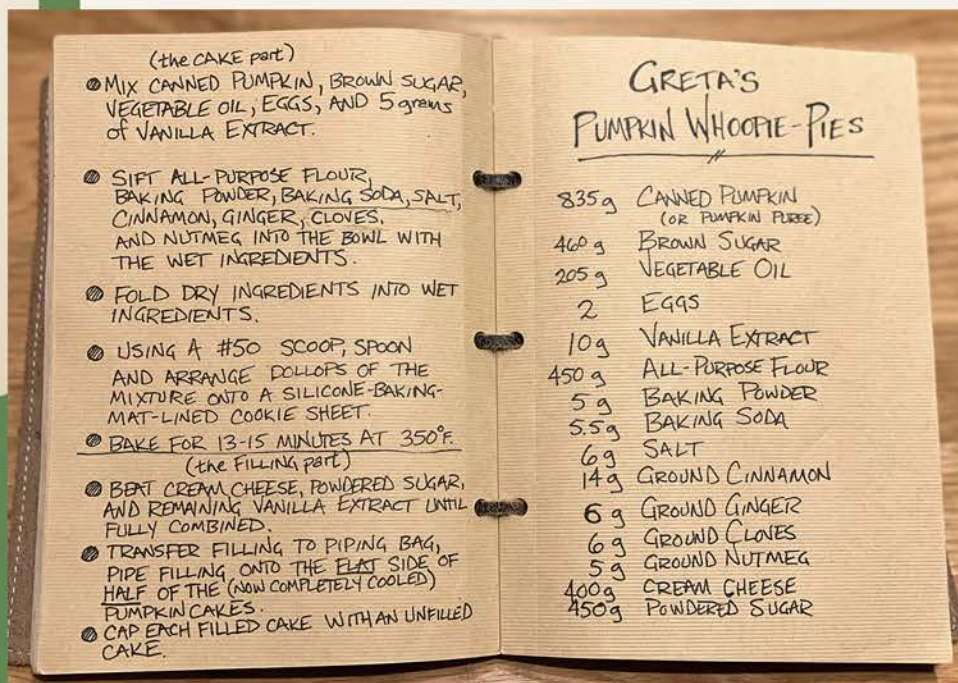 (the CAKE part)
MIX CANNED PUMPKIN, BROWN SUGAR,
VEGETABLE OIL, EGGS, AND 5 grams
of VANILLA EXTRACT.
SIFT ALL-PURPOSE FLOUR,
BAKING POWDER, BAKING SODA, SALT,
CINNAMON, GINGER, CLOVES,
AND NUTMEG INTO THE BOWL WITH
THE WET INGREDIENTS.
FOLD DRY INGREDIENTS INTO WET
INGREDIENTS.
USING A #50 SCOOP, SPOON
AND ARRANGE DOLLOPS OF THE
MIXTURE ONTO A SILICONE-BAKING-
MAT-LINED COOKIE SHEET.
BAKE FOR 13-15 MINUTES AT 350°F.
(the FILLING part)
BEAT CREAM CHEESE, POWDERED SUGAR,
AND REMAINING VANILLA EXTRACT UNTIL
FULLY COMBINED.
TRANSFER FILLING TO PIPING BAG,
PIPE FILLING ONTO THE FLAT SIDE OF
HALF OF THE (NOW COMPLETELY COOLED)
PUMPKIN CAKES.
CAP EACH FILLED CAKE WITH AN UNFILLED
CAKE.
GRETA'S
PUMPKIN WHOOPIE-PIES
835g CANNED PUMPKIN
(OR PUMPKIN PUREE)
460 g BROWN SUGAR
205 g VEGETABLE OIL
2 EGGS
10g VANILLA EXTRACT
450 g ALL-PURPOSE FLOUR
5 g BAKING POWDER
5.5g BAKING SODA
6g SALT
14g GROUND CINNAMON
6 g GROUND GINGER
6 g GROUND CLOVES
5g GROUND NUTMEG
400g CREAM CHEESE
450g POWDERED SUGAR